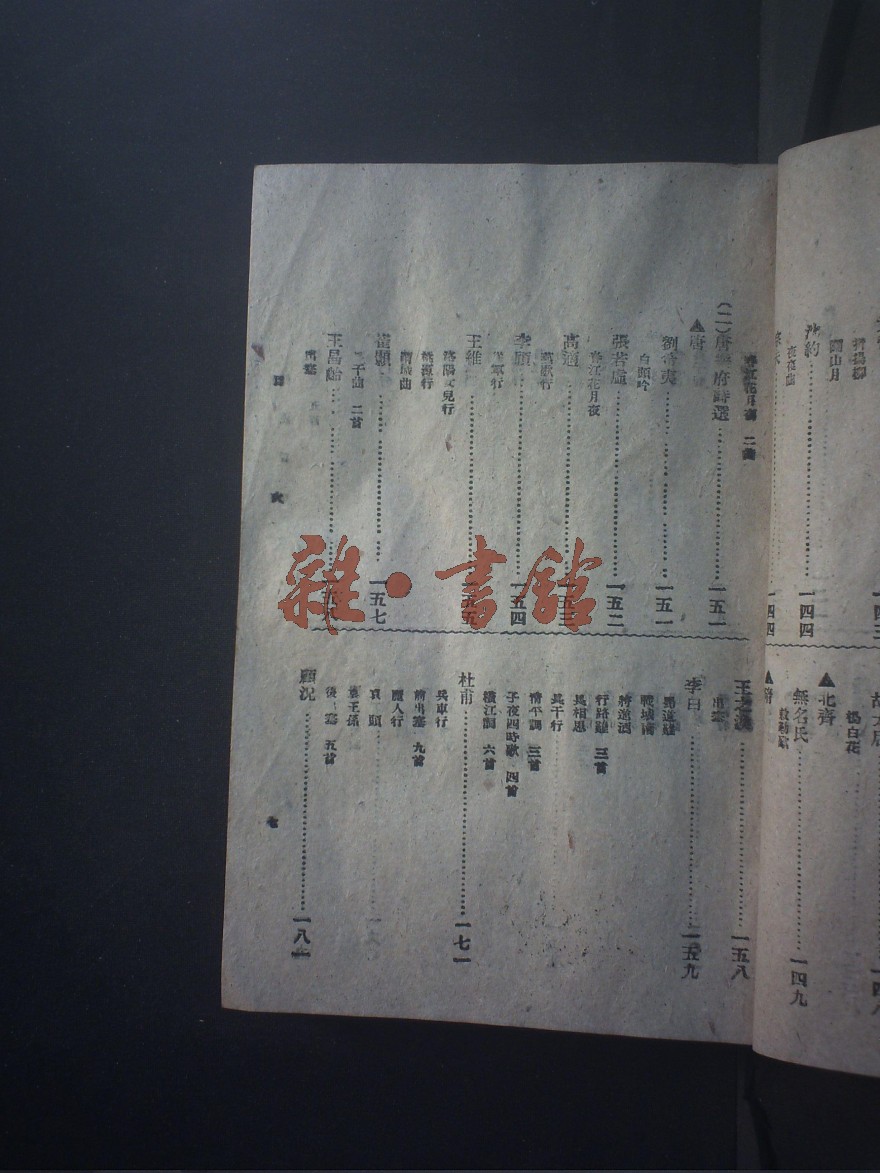 折楊柳
關山月
沈約
夜夜曲
一四四
一四三
一四四
楊白花
▲北齊
無名氏
敕勒歌
一四九
▲隋
春江花月夜 二首
(二)唐樂府詩選
▲唐
一五一
劉希夷
一五一
白頭吟
張若虛
一五二
春江花月夜
高適
一五三
燕歌行
李頎
一五四
從軍行
王維
一五五
洛陽女兒行
桃源行
渭城曲
崔顥
一五七
長干曲 二首
王昌齡
出塞
王之渙
一五八
出塞
李白
一五九
蜀道難
戰城南
將進酒
行路難 三首
長相思
長干行
清平調 三首
子夜四時歌 四首
橫江詞 六首
杜甫
一七一
兵車行
前出塞 九首
麗人行
哀江頭
哀王孫
後出塞 五首
顧況
一八一
目
次
七
雜·書館